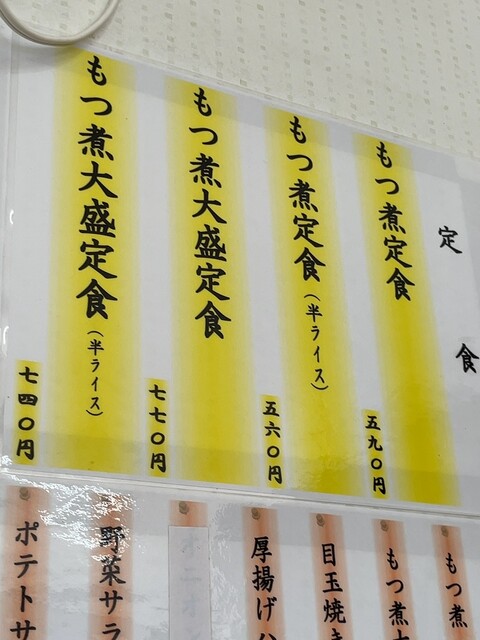 定食
もつ煮定食
五九〇円
もつ煮定食(半ライス)
五六〇円
もつ煮大盛定食
七七〇円
もつ煮大盛定食(半ライス)
七四〇円
もつ煮
もつ煮
目玉焼き
厚揚げ
野菜サラ
ポテトサ